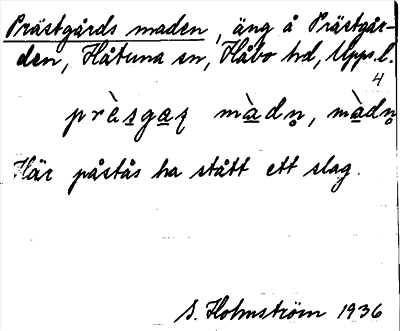 Prästgårds maden, äng å Prästgår-
den, Håtuna sn, Håbo hd, Upps.l.
4
prèsgaș màdṇ, màdṇ
Här påstås ha stått ett slag.
S. Holmström 1936